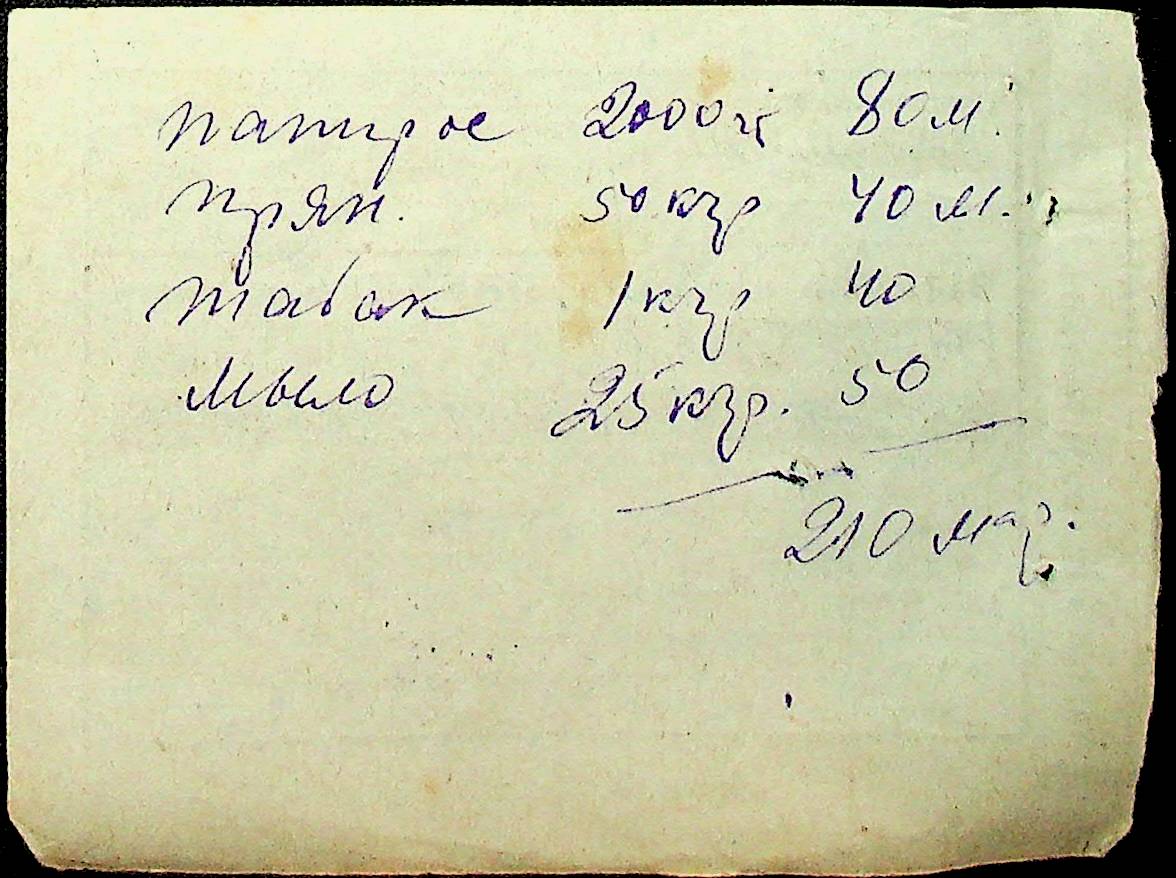 папирос 2000 ш 80 м.
прян. 50 кгр 40 м.
табак 1 кгр 40
мыло 25 кгр. 50
210 мар.